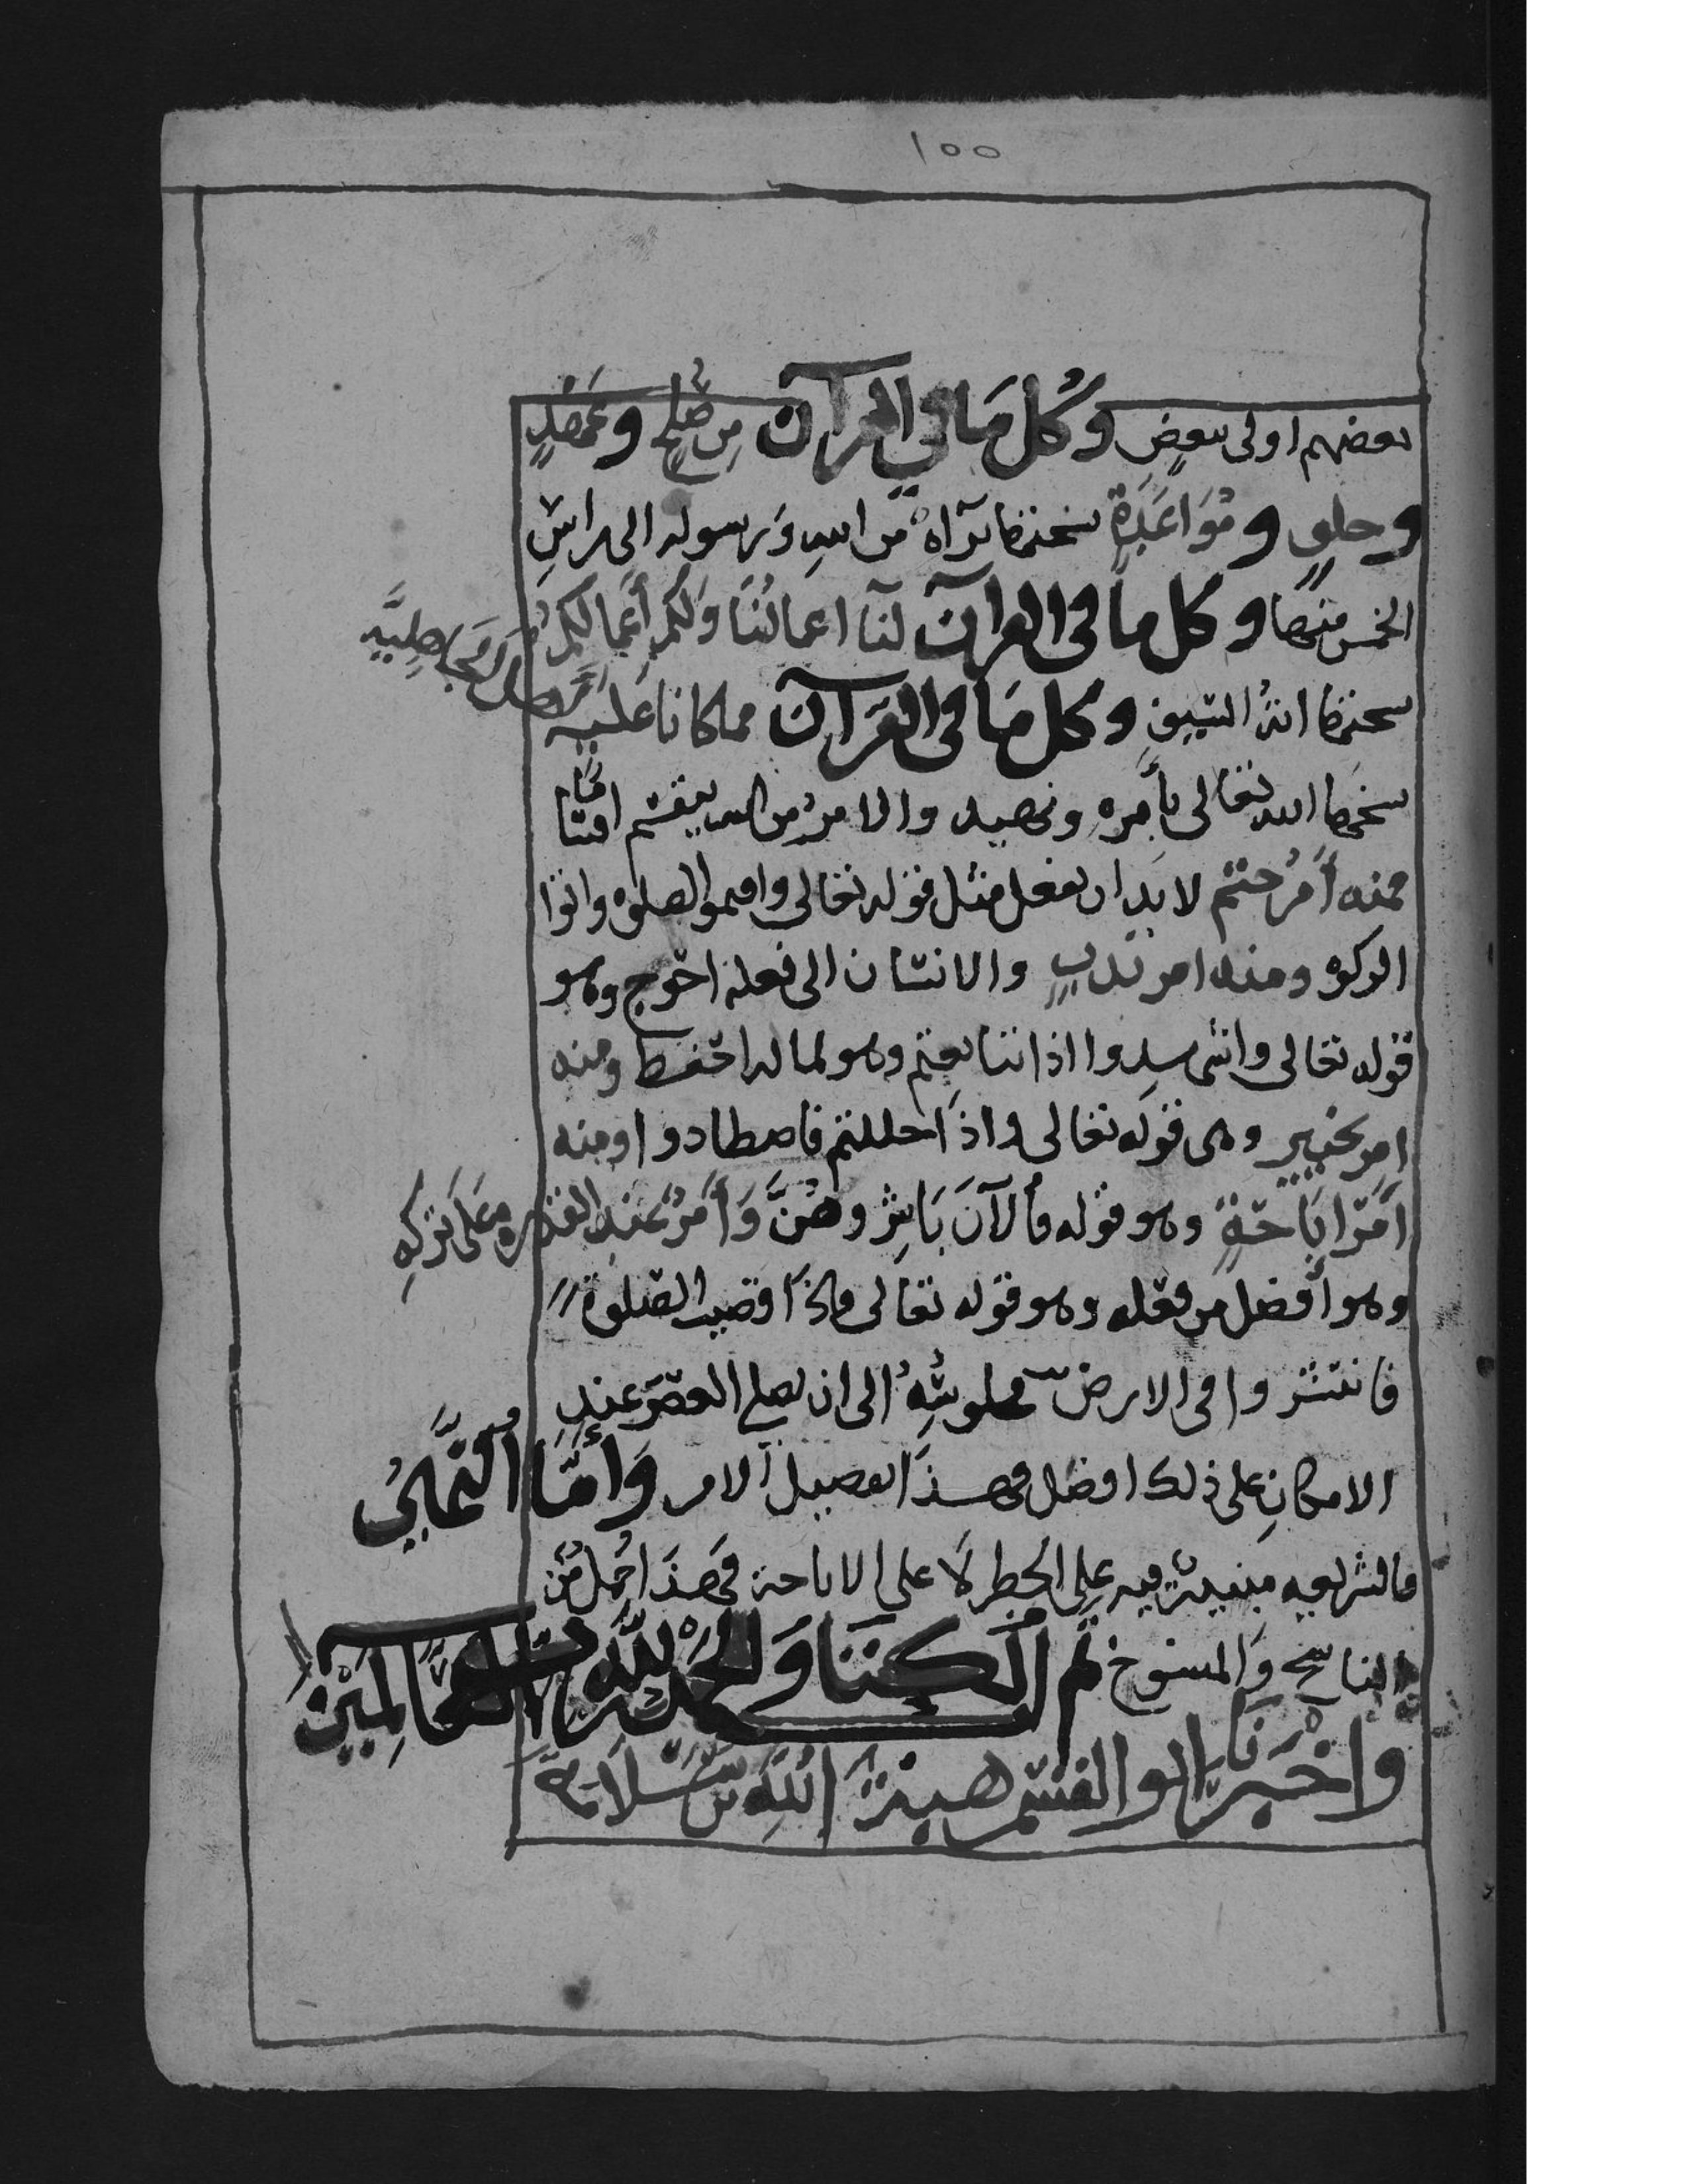 ١٥٥
بعضهم اولى ببعض وكل ما في القرآن من صلح وعهد
وحلف ومواعدة نسختها براءة من الله ورسوله الى راس
الخمس منها وكل ما في القرآن لنا اعمالنا ولكم أعمالكم
نسختها اية السيف وكل ما في القرآن مما كانا عليه اهل الجاهلية
نسخها الله تعالى بأمره ونهيه والامر من الله ينقسم اقساما
فمنه أمر حتم لا بد ان يفعل مثل قوله تعالى واقيموا الصلوة واتوا
الزكوة ومنه امر ندب والانسان الى فعله احوج وهو
قوله تعالى واشهدوا اذا تبايعتم وهو لماله احفظ ومنه
امر تخيير وهي قوله تعالى واذا حللتم فاصطادوا ومنه
امر اباحة وهو قوله فالآن باشروهن وأمر عند القدرة على تركه
وهو أفضل من فعله وهو قوله تعالى فاذا قضيت الصلوة
فانتشروا في الارض الى ان يصلي العصر عند
الامكان على ذلك افضل فهذا تفصيل الامر وأما النهي
فالشريعة مبنية فيه على الحظر لا على الاباحة فهذا جمل من
الناسخ والمنسوخ تم الكتاب والحمد لله رب العالمين
واخبرنا ابو القسم هبة الله بن سلامة